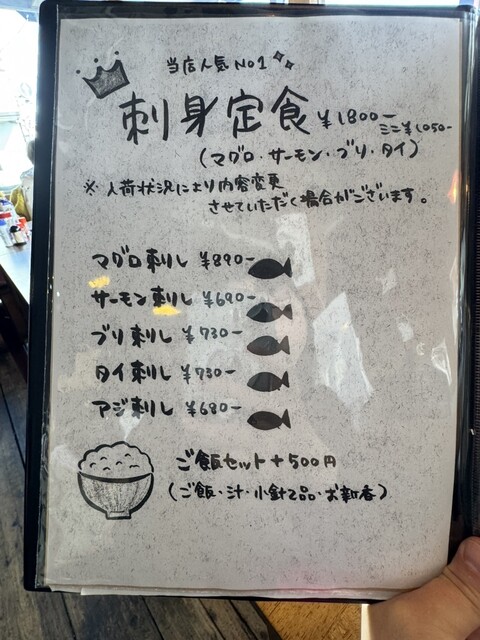 当店人気No1
刺身定食 ¥1800-
ミニ¥1050-
(マグロ・サーモン・ブリ・タイ)
※入荷状況により内容変更
させていただく場合がございます。
マグロ刺し ¥890-
サーモン刺し ¥690-
ブリ刺し ¥730-
タイ刺し ¥730-
アジ刺し ¥680-
ご飯セット+500円
(ご飯・汁・小鉢2品・お新香)